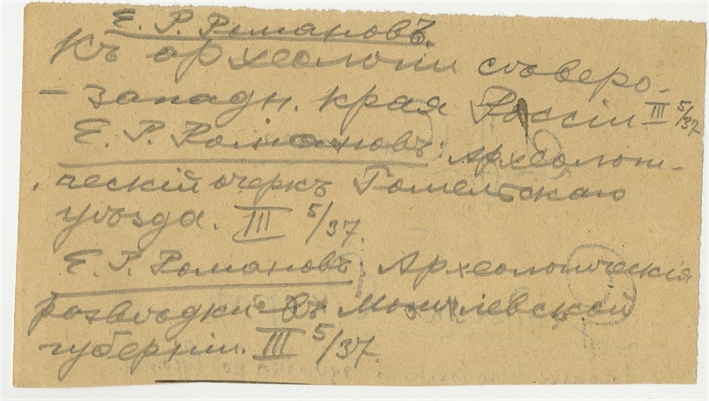 Е. Р. Романовъ.
Къ археологіи сѣверо-
-западн. края Россіи III 5/37
Е. Р. Романовъ: Археологи-
ческій очеркъ Гомельскаго
уѣзда. III 5/37.
Е. Р. Романовъ: Археологическія
розвѣдки въ Могилевской
губерніи. III 5/37.